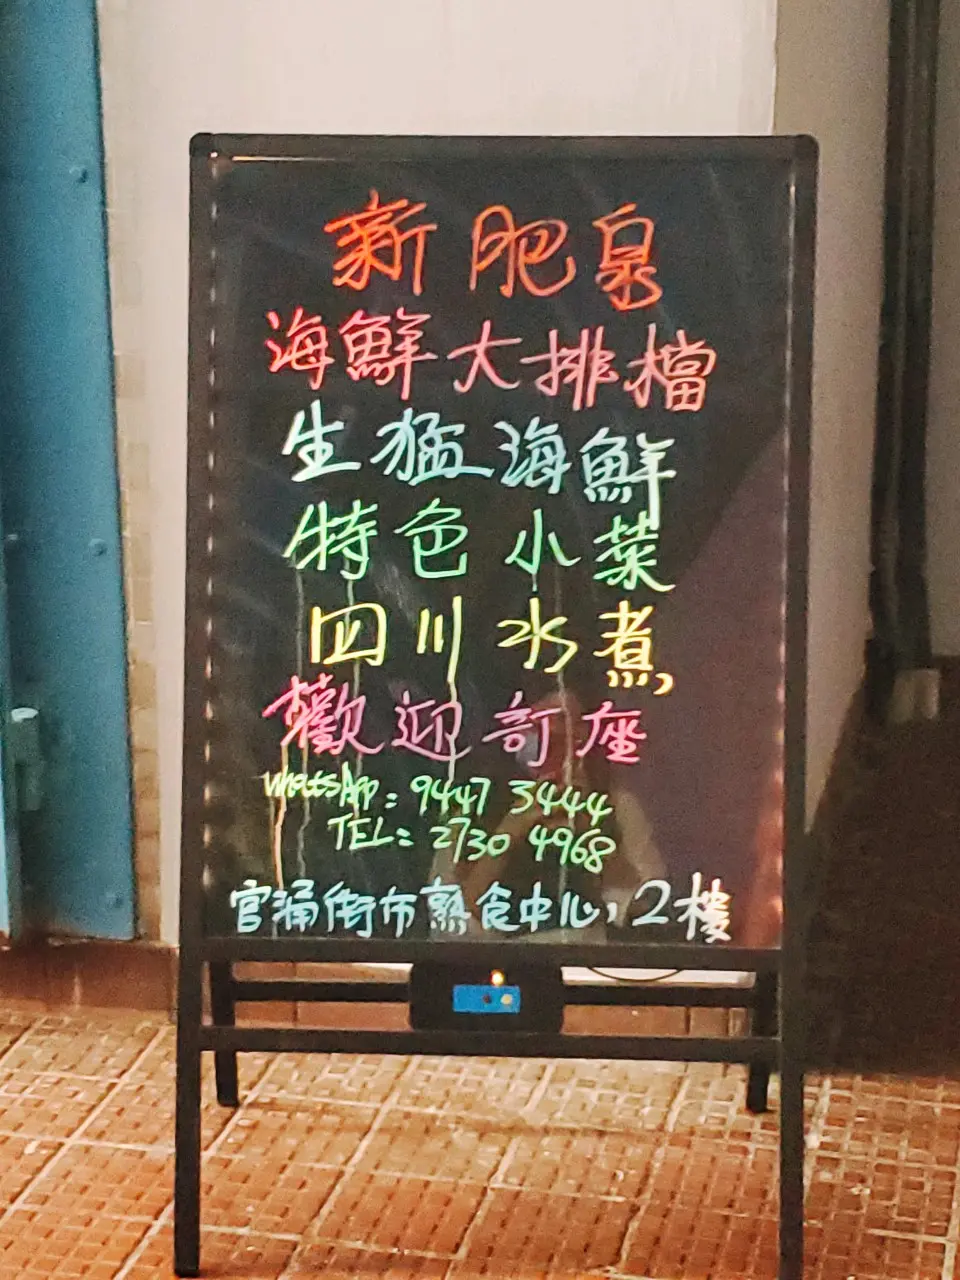 新肥泉
海鮮大排檔
生猛海鮮
特色小菜
四川水煮
歡迎訂座
WhatsApp: 9447 3444
TEL: 2730 4968
官涌街市熟食中心, 2樓